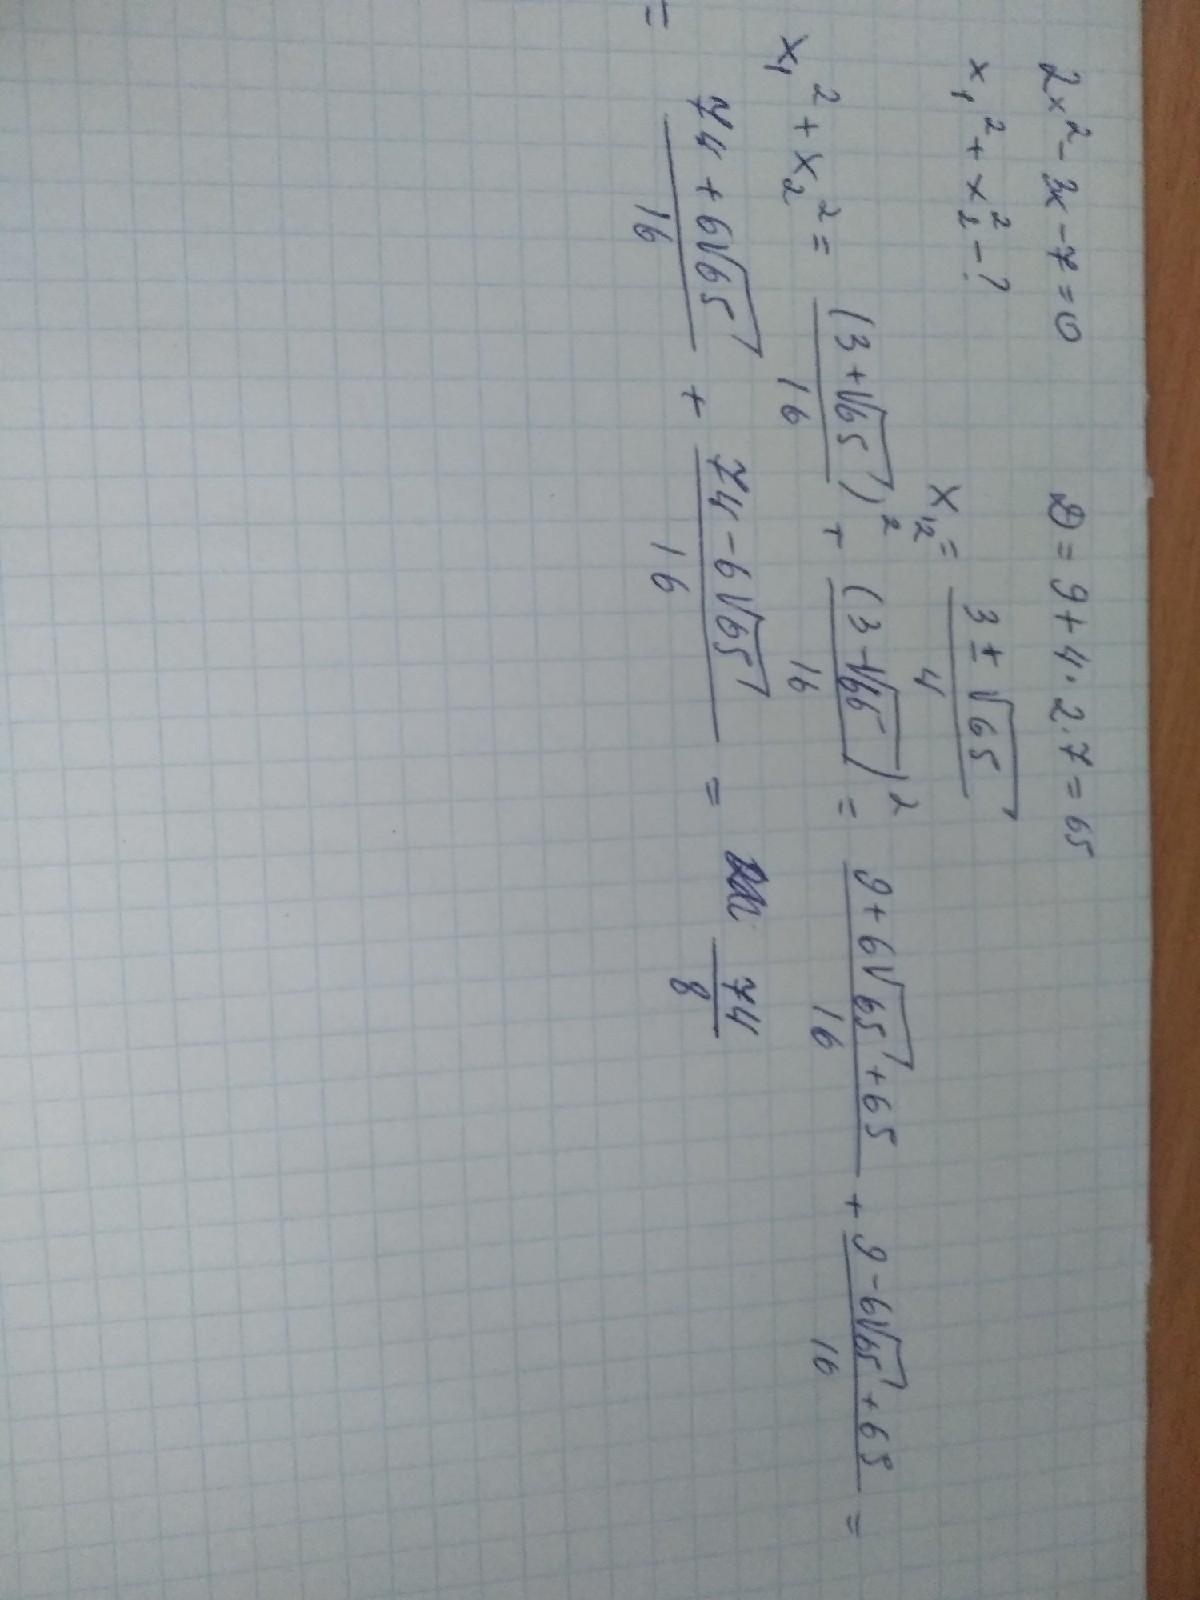 2x² - 3x - 7 = 0    D = 9 + 4 · 2 · 7 = 65
x₁² + x₂² - ?    x₁,₂ = (3 ± √65)/4
x₁² + x₂² = (3 + √65)²/16 + (3 - √65)²/16 = (9 + 6√65 + 65)/16 + (9 - 6√65 + 65)/16 =
= (74 + 6√65)/16 + (74 - 6√65)/16 = 74/8